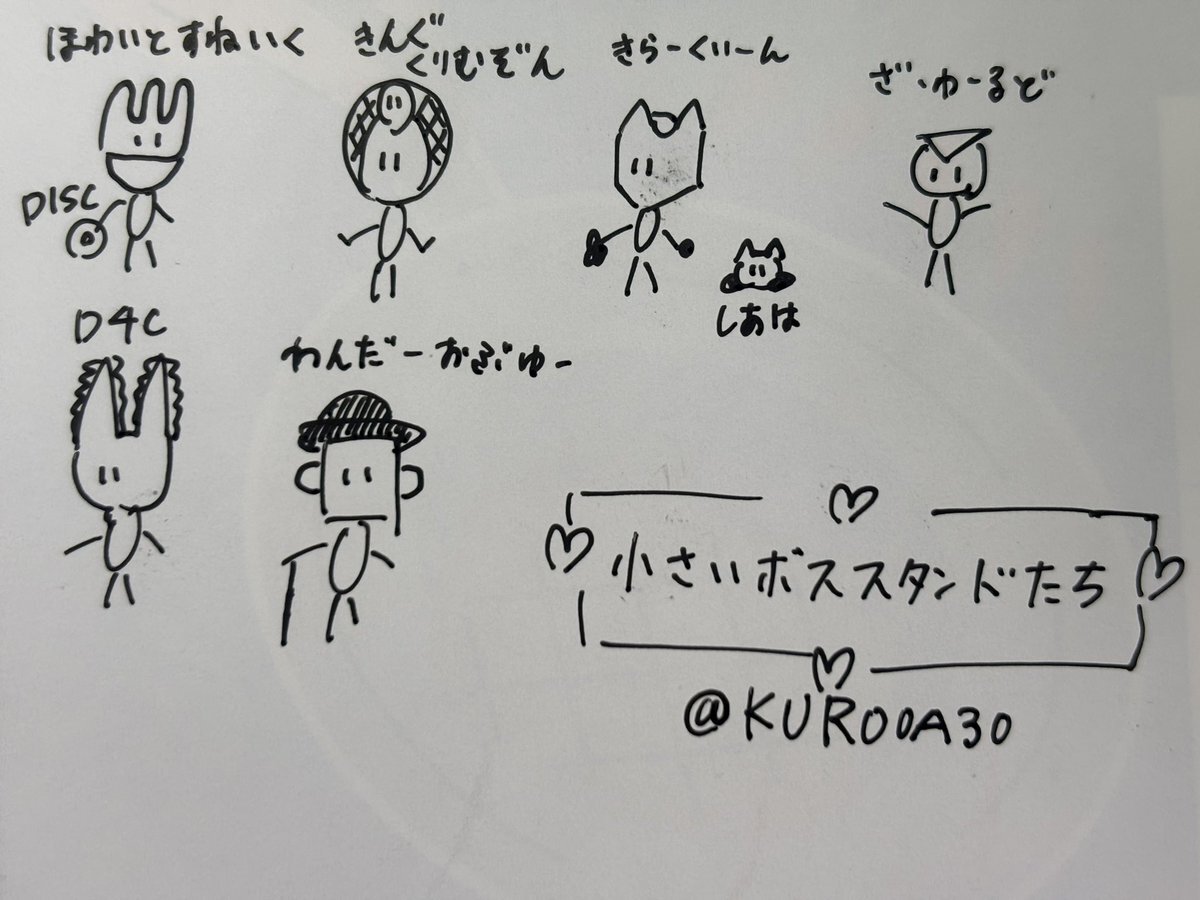 ほわいとすねいく
きんぐ
くりむぞん
きらーくいーん
ざ・わーるど
DISC
しあは
D4C
わんだーおぶゆー
小さいボススタンドたち
@KUROOA30